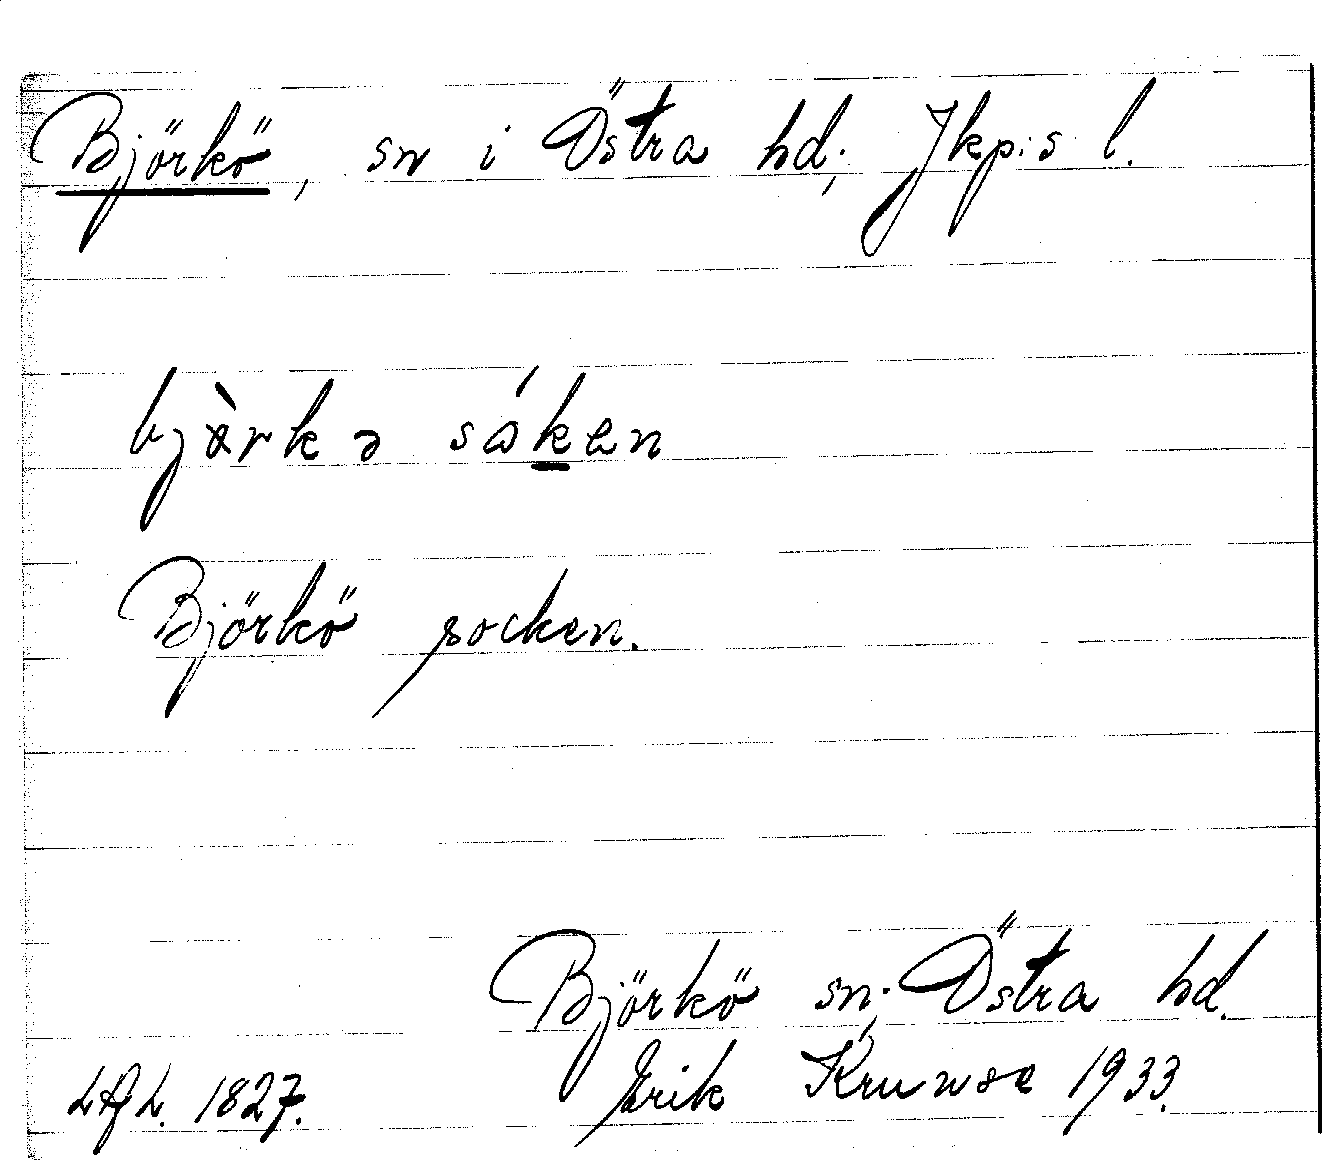 Björkö, sn i Östra hd; Jkp:s l.
bjærkə såken
Björkö socken.
Björkö sn; Östra hd.
Erik
1933.
LAL. 1827.